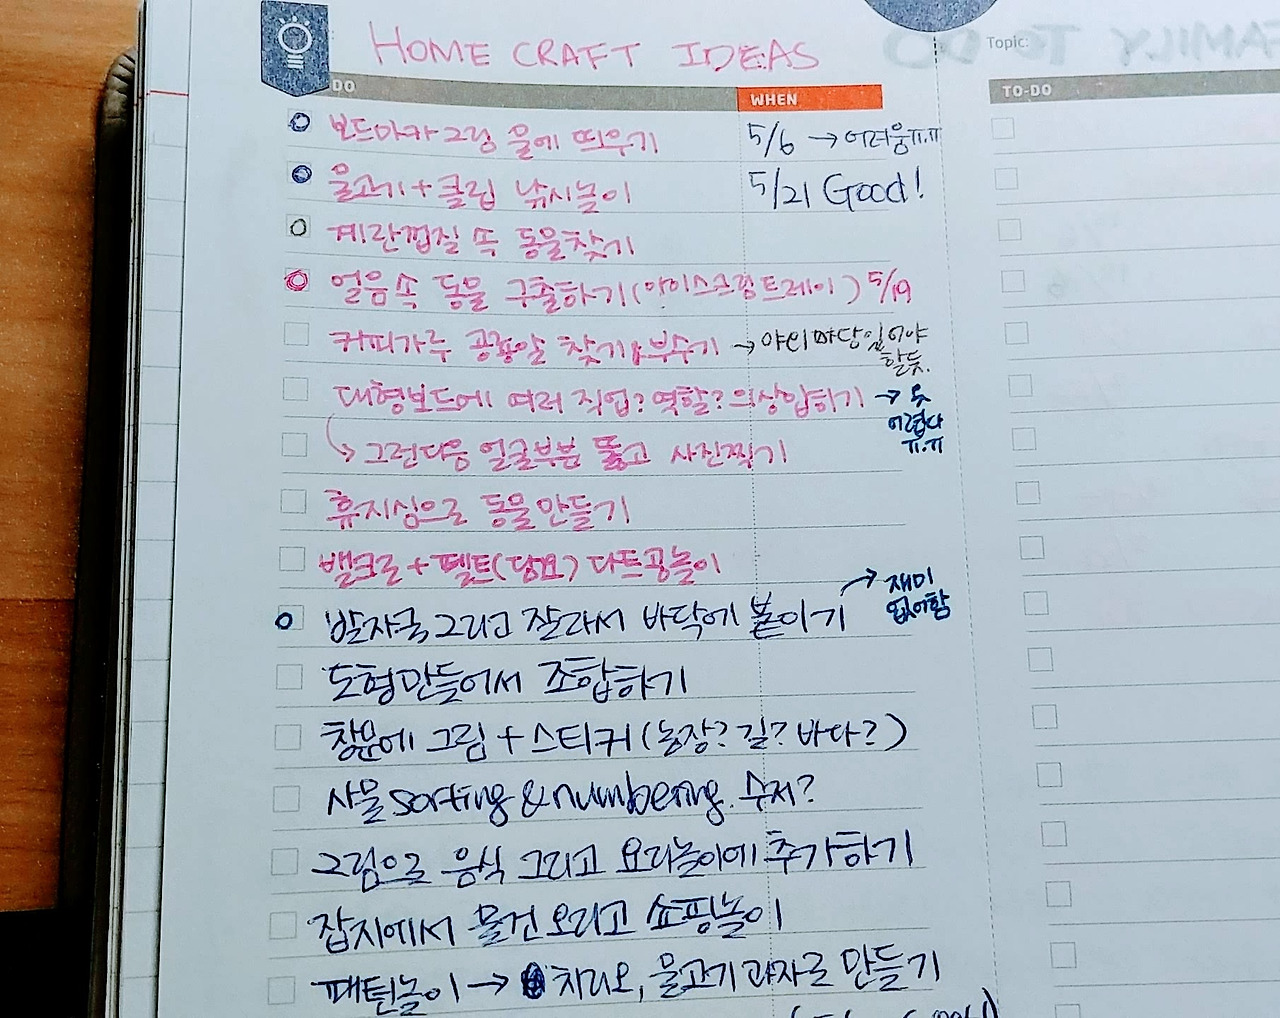 HOME CRAFT IDEAS
DO WHEN
보드마카 그림 물에 띄우기 5/6 → 어려움ㅠ.ㅠ
물고기 + 클립 낚시놀이 5/21 Good!
계란껍질 속 동물찾기
얼음 속 동물 구출하기 (아이스크림트레이) 5/19
커피가루 공룡알 찾기, 부수기 → 야외 마당 있어야
할듯.
대형보드에 여러 직업? 역할? 의상입히기 →
어렵다
ㅠ.ㅠ
↳ 그런다음 얼굴부분 뚫고 사진찍기
휴지심으로 동물 만들기
벨크로 + 펠트(담요) 다트공놀이
발자국 그리고 잘라서 바닥에 붙이기 → 재미
없어함
도형만들어서 조합하기
창문에 그림 + 스티커 (농장? 길? 바다?)
사물 sorting & numbering. 숫자?
그림으로 음식 그리고 요리놀이에 추가하기
잡지에서 물건 오리고 쇼핑놀이
패턴놀이 → 치리오, 물고기 과자로 만들기
Topic:
FAMILY TO DO
TO-DO